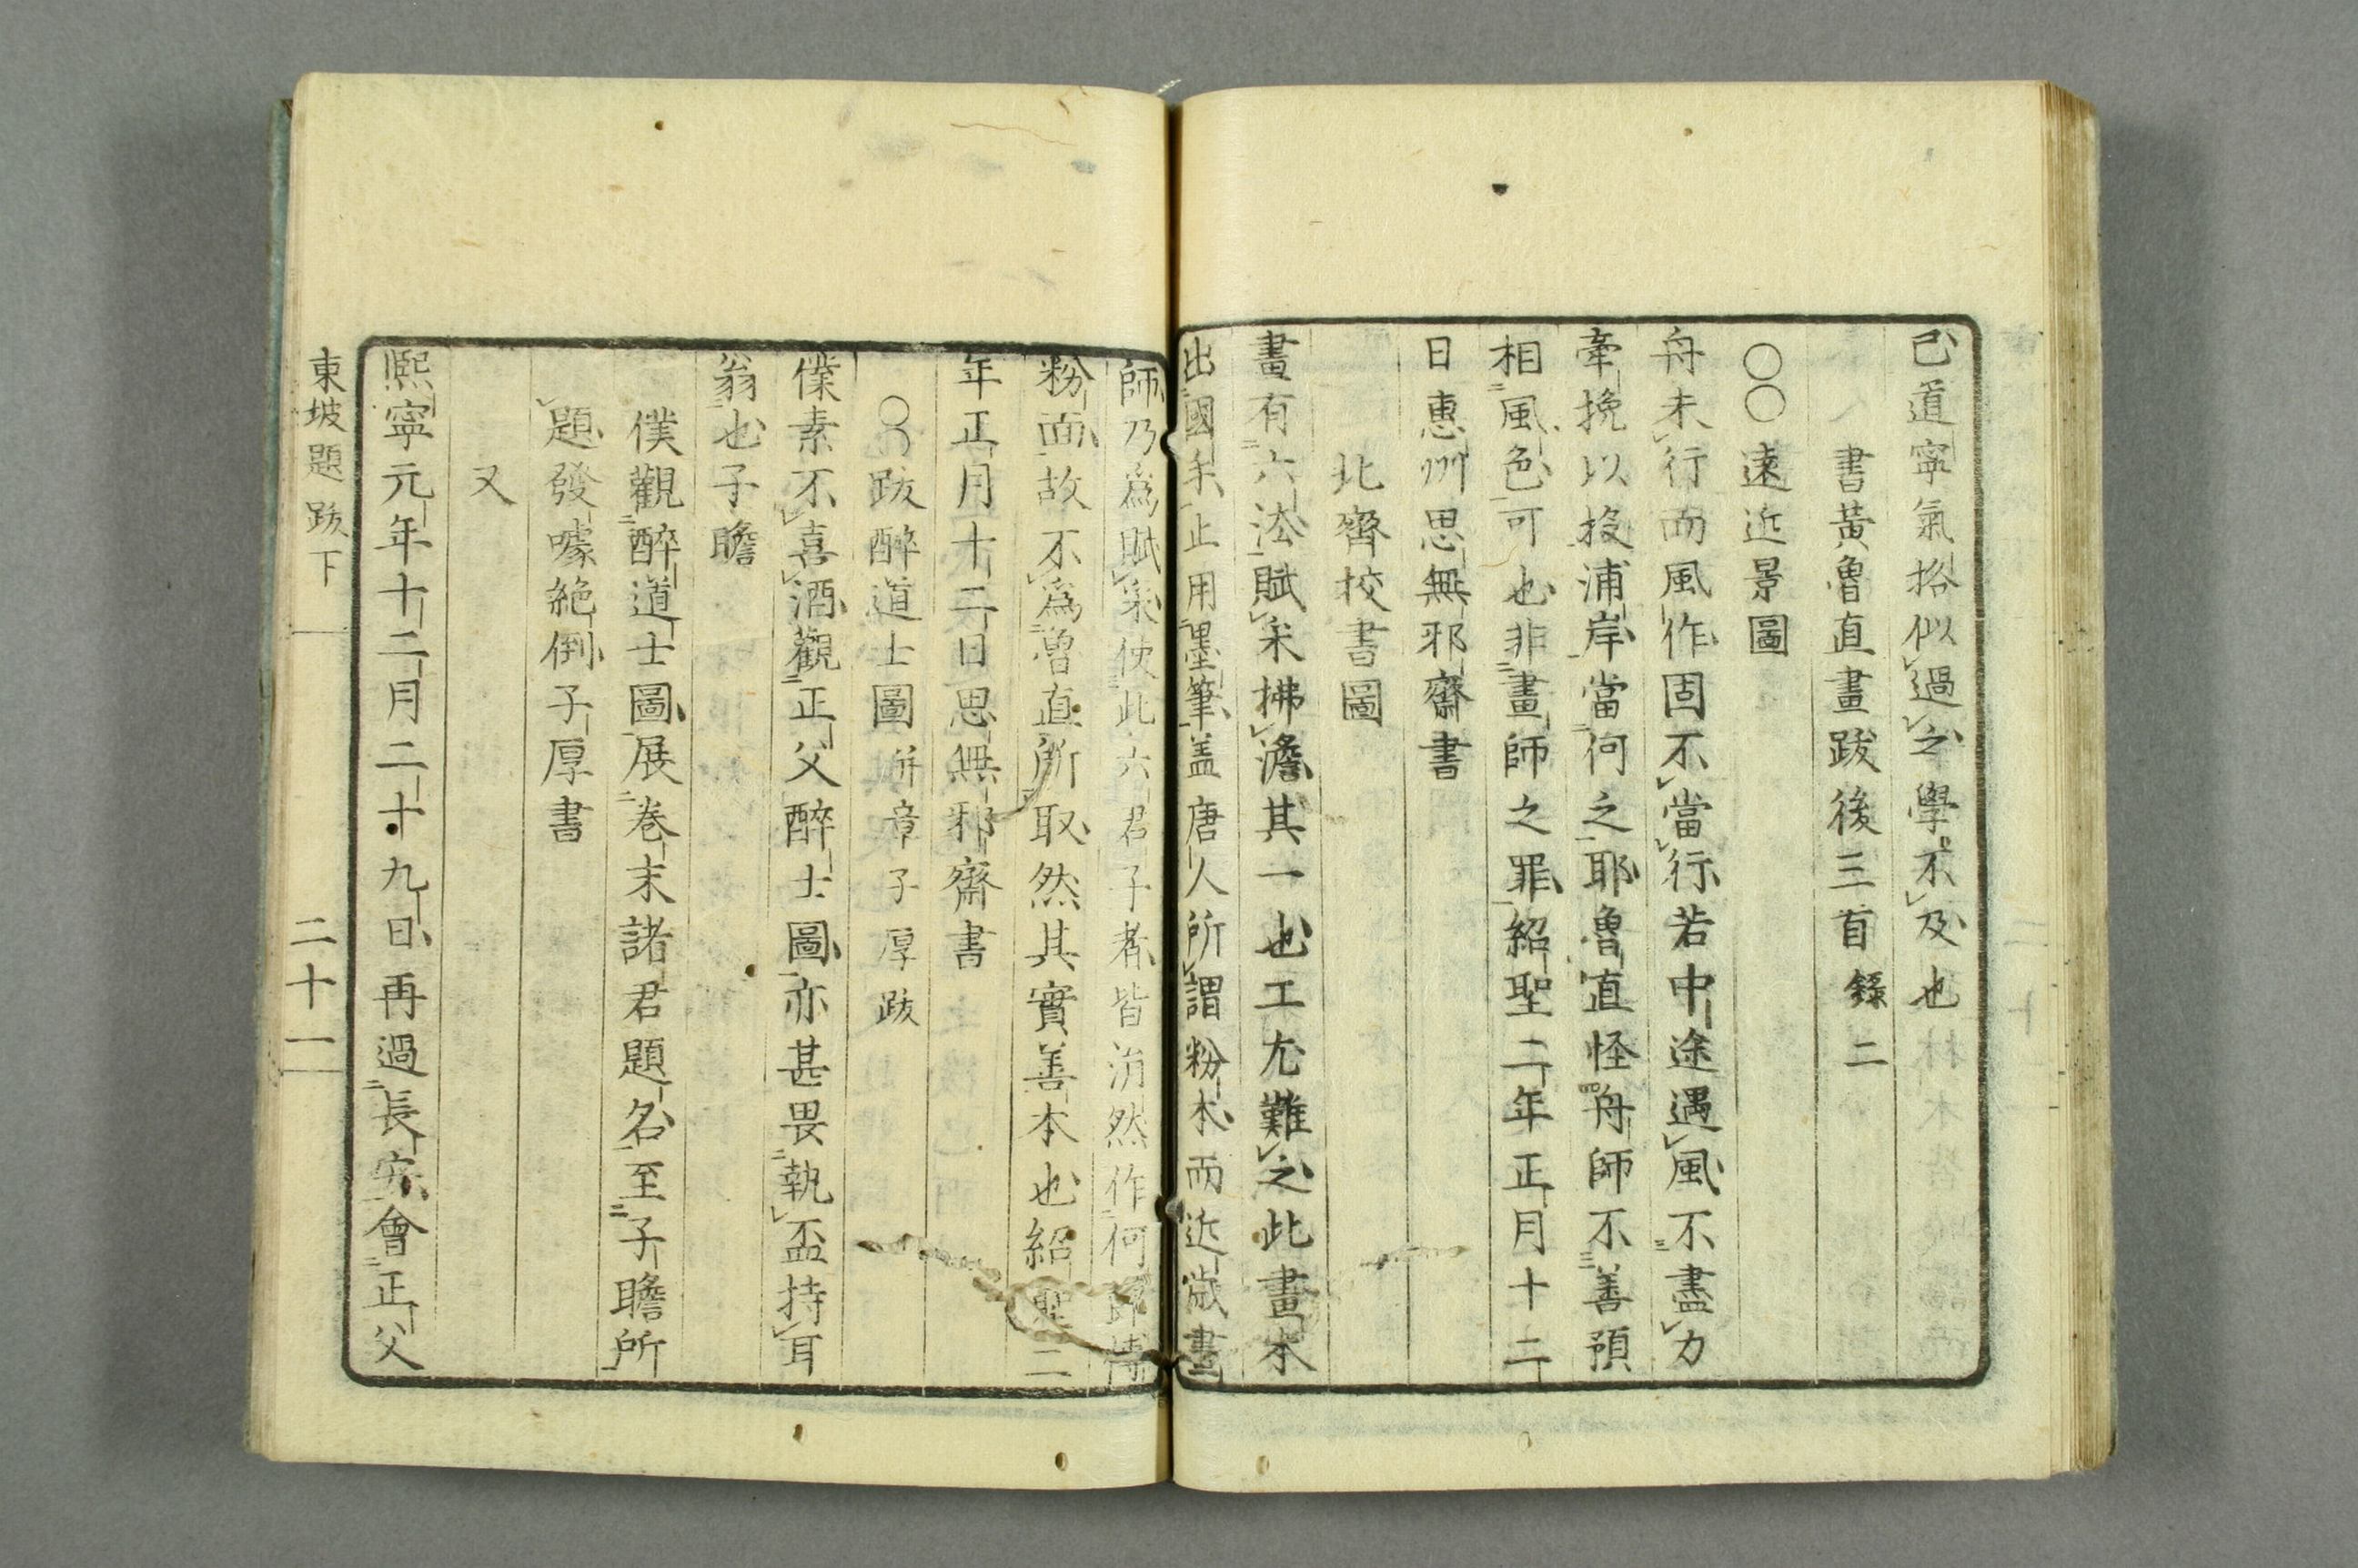 已道寧氣格似過之學不及也
書黃魯直畫跋後三首 錄二
○○遠近景圖
舟未行而風作固不當行若中途遇風不盡力
牽挽以投浦岸當何之耶魯直怪舟師不善預
相風色可也非畫師之罪紹聖二年正月十二
日惠州思無邪齋書
北齊校書圖
畫有六法賦采拂澹其一也工尤難之此畫本
出國手止用墨筆盖唐人所謂粉本而近歲畫
師乃為賦采使此六君子者皆消然作何郎傅
粉面故不為魯直所取然其實善本也紹聖二
年正月十二日思無邪齋書
○○跋醉道士圖 併章子厚跋
僕素不喜酒觀正父醉士圖亦甚畏執盃持耳
翁也子瞻
僕觀醉道士圖展卷末諸君題名至子瞻所
題發噱絕倒子厚書
又
熈寧元年十二月二十九日再過長安會正父
東坡題跋下
二十一